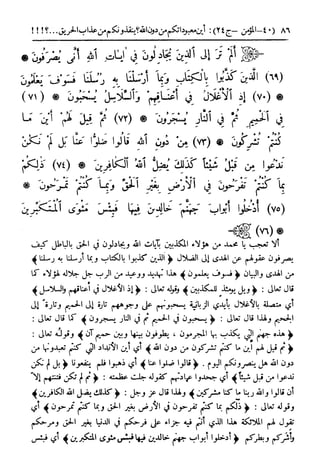 ٨٦ (٤٠) – المؤمن – ج ٢٤) : أين معبوداتكم من دون الله؟ ينقذونكم من عذاب الحريق...؟!!!
أَلَمْ تَرَ إِلَى الَّذِينَ يُجَادِلُونَ فِي آيَاتِ اللَّهِ أَنَّى يُصْرَفُونَ
(٦٩) الَّذِينَ كَذَّبُوا بِالْكِتَابِ وَبِمَا أَرْسَلْنَا بِهِ رُسُلَنَا فَسَوْفَ يَعْلَمُونَ
(٧٠) إِذِ الْأَغْلَالُ فِي أَعْنَاقِهِمْ وَالسَّلَاسِلُ يُسْحَبُونَ (٧١)
فِي الْحَمِيمِ ثُمَّ فِي النَّارِ يُسْجَرُونَ (٧٢) ثُمَّ قِيلَ لَهُمْ أَيْنَ مَا
كُنْتُمْ تُشْرِكُونَ (٧٣) مِنْ دُونِ اللَّهِ قَالُوا ضَلُّوا عَنَّا بَلْ لَمْ نَكُنْ
نَدْعُوا مِنْ قَبْلُ شَيْئًا كَذَلِكَ يُضِلُّ اللَّهُ الْكَافِرِينَ (٧٤) ذَلِكُمْ
بِمَا كُنْتُمْ تَفْرَحُونَ فِي الْأَرْضِ بِغَيْرِ الْحَقِّ وَبِمَا كُنْتُمْ تَمْرَحُونَ
(٧٥) ادْخُلُوا أَبْوَابَ جَهَنَّمَ خَالِدِينَ فِيهَا فَبِئْسَ مَثْوَى الْمُتَكَبِّرِينَ
(٧٦)
ألا تعجب يا محمد من هؤلاء المكذبين بآيات الله ويجادلون في الحق بالباطل كيف
يصرفون عقولهم عن الهدى إلى الضلال ﴿ الذين كذبوا بالكتاب وبما أرسلنا به رسلنا ﴾
من الهدى والبيان ﴿ فسوف يعلمون ﴾ هذا تهديد ووعيد من الرب جل جلاله لهؤلاء كما
قال تعالى : ﴿ ويل يومئذ للمكذبين ﴾ وقوله تعالى : ﴿ إذ الأغلال في أعناقهم والسلاسل ﴾
أي متصلة بالأغلال بأيدي الزبانية يسحبونهم على وجوههم تارة إلى الحميم وتارة إلى
الجحيم ولهذا قال تعالى : ﴿ يسحبون في الحميم ثم في النار يسجرون ﴾ كما قال تعالى :
﴿ هذه جهنم التي يكذب بها المجرمون ، يطوفون بينها وبين حميم آن ﴾ وقوله تعالى
﴿ ثم قيل لهم أين ما كنتم تشركون من دون الله ﴾ أي أين الأنداد التي كنتم تعبدونها من
دون الله هل ينصرونكم اليوم . ﴿ قالوا ضلوا عنا ﴾ أي ذهبوا فلم ينفعونا ﴿ بل لم نكن
ندعوا من قبل شيئاً ﴾ أي جحدوا عبادتهم كقوله جلت عظمته : ﴿ ثم لم تكن فتنتهم إلا
أن قالوا والله ربنا ما كنا مشركين ﴾ ولهذا قال عز وجل : ﴿ كذلك يضل الله الكافرين ﴾
وقوله تعالى : ﴿ ذلكم بما كنتم تفرحون في الأرض بغير الحق وبما كنتم تمرحون ﴾ أي
تقول لهم الملائكة هذا الذي أنتم فيه جزاء على فرحكم في الدنيا بغير الحق ومرحكم
وأشركم وبطركم ﴿ ادخلوا أبواب جهنم خالدين فيها فبئس مثوى المتكبرين ﴾ أي فبئس